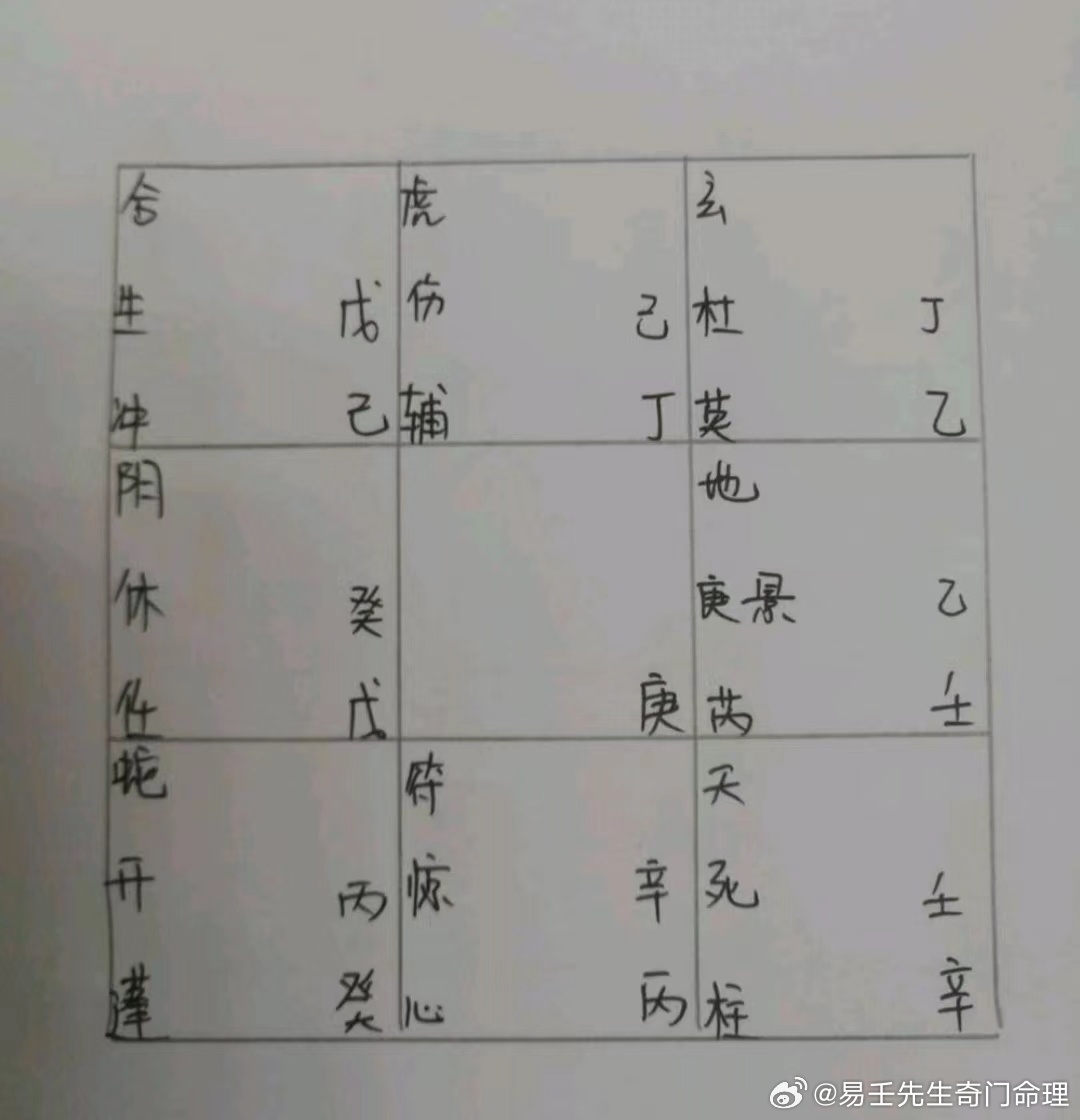 合
生 戊
冲 己
虎
伤 己
辅 丁
玄
杜 丁
英 乙
阴
休 癸
任 戊
庚
地
庚景 乙
芮 壬
蛇
开 丙
蓬 癸
符
惊 辛
心 丙
天
死 壬
柱 辛
@易壬先生奇门命理